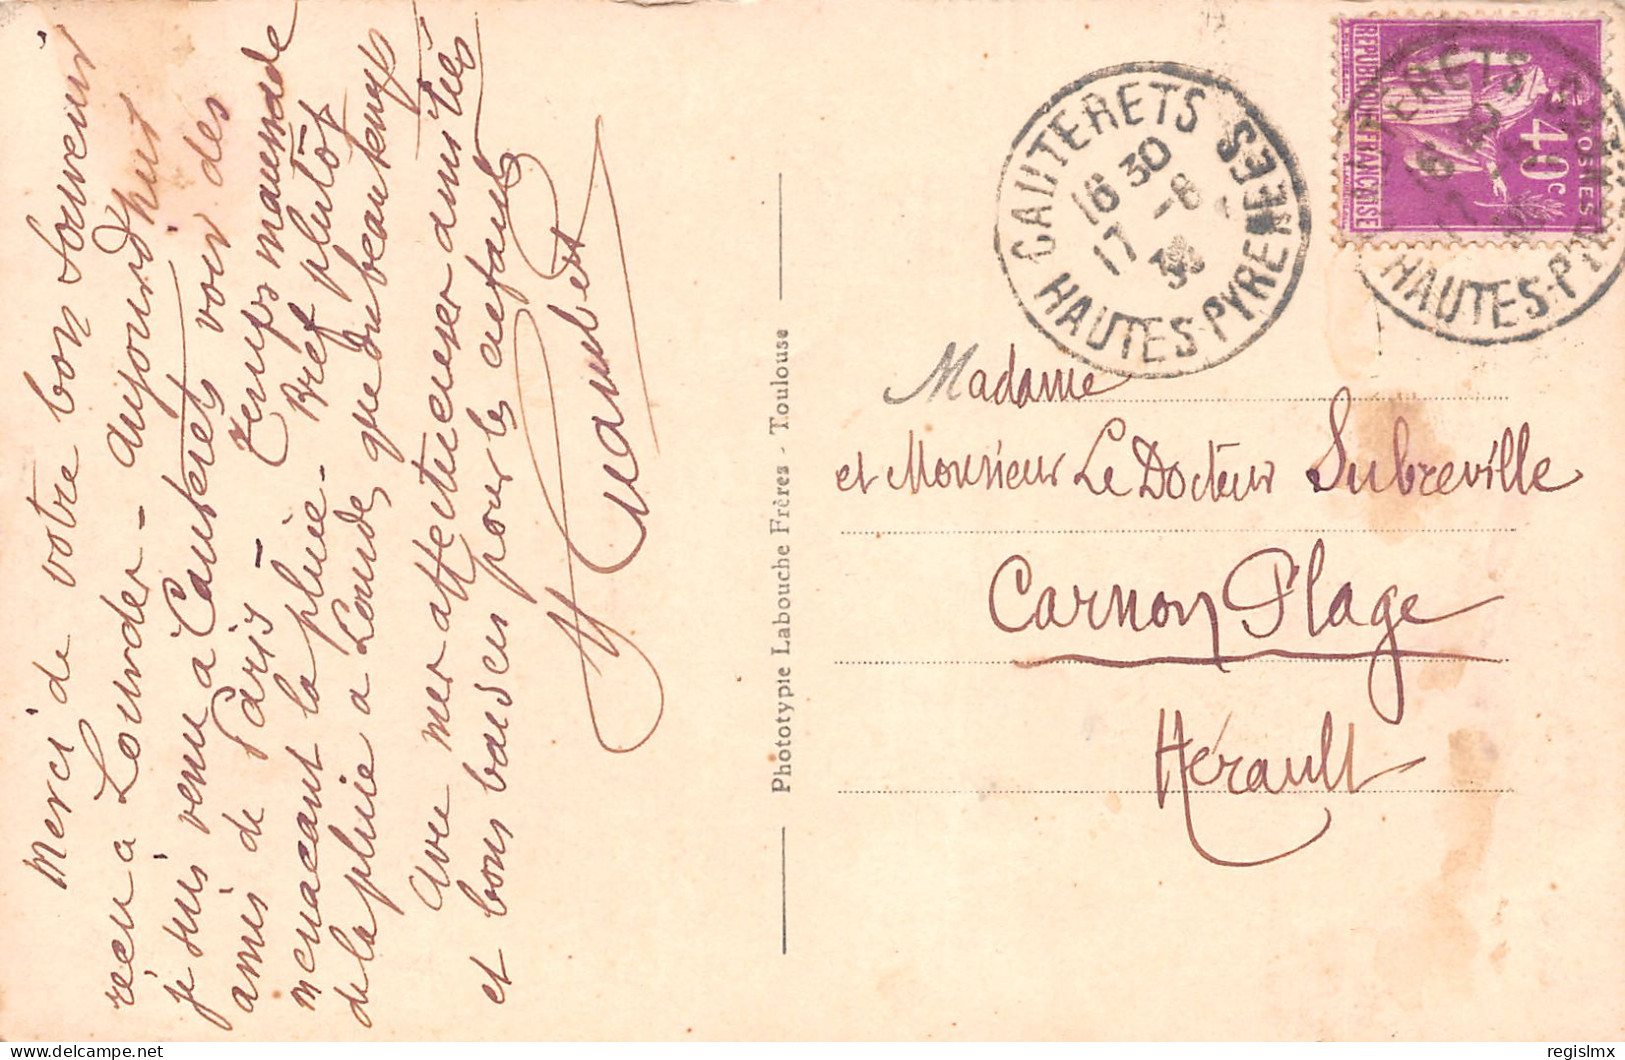 Merci de votre bon souvenir
reçu à Lourdes - aujourd'hui
je suis venu à Cauterets voir des
amis de Paris - Temps maussade
menaçant la pluie - Bref plutôt
de la pluie à Lourdes que du beau temps
Avec mes affectueuses amitiés
et bons baisers pour les enfants
Phototypie Labouche Frères - Toulouse
CAUTERETS
16 30
17 -8
HAUTES-PYRENEES
REPUBLIQUE FRANÇAISE
POSTES
40c
HAUTES-P
Madame
et Monsieur Le Docteur Subreville
Carnon Plage
Hérault
regislmx